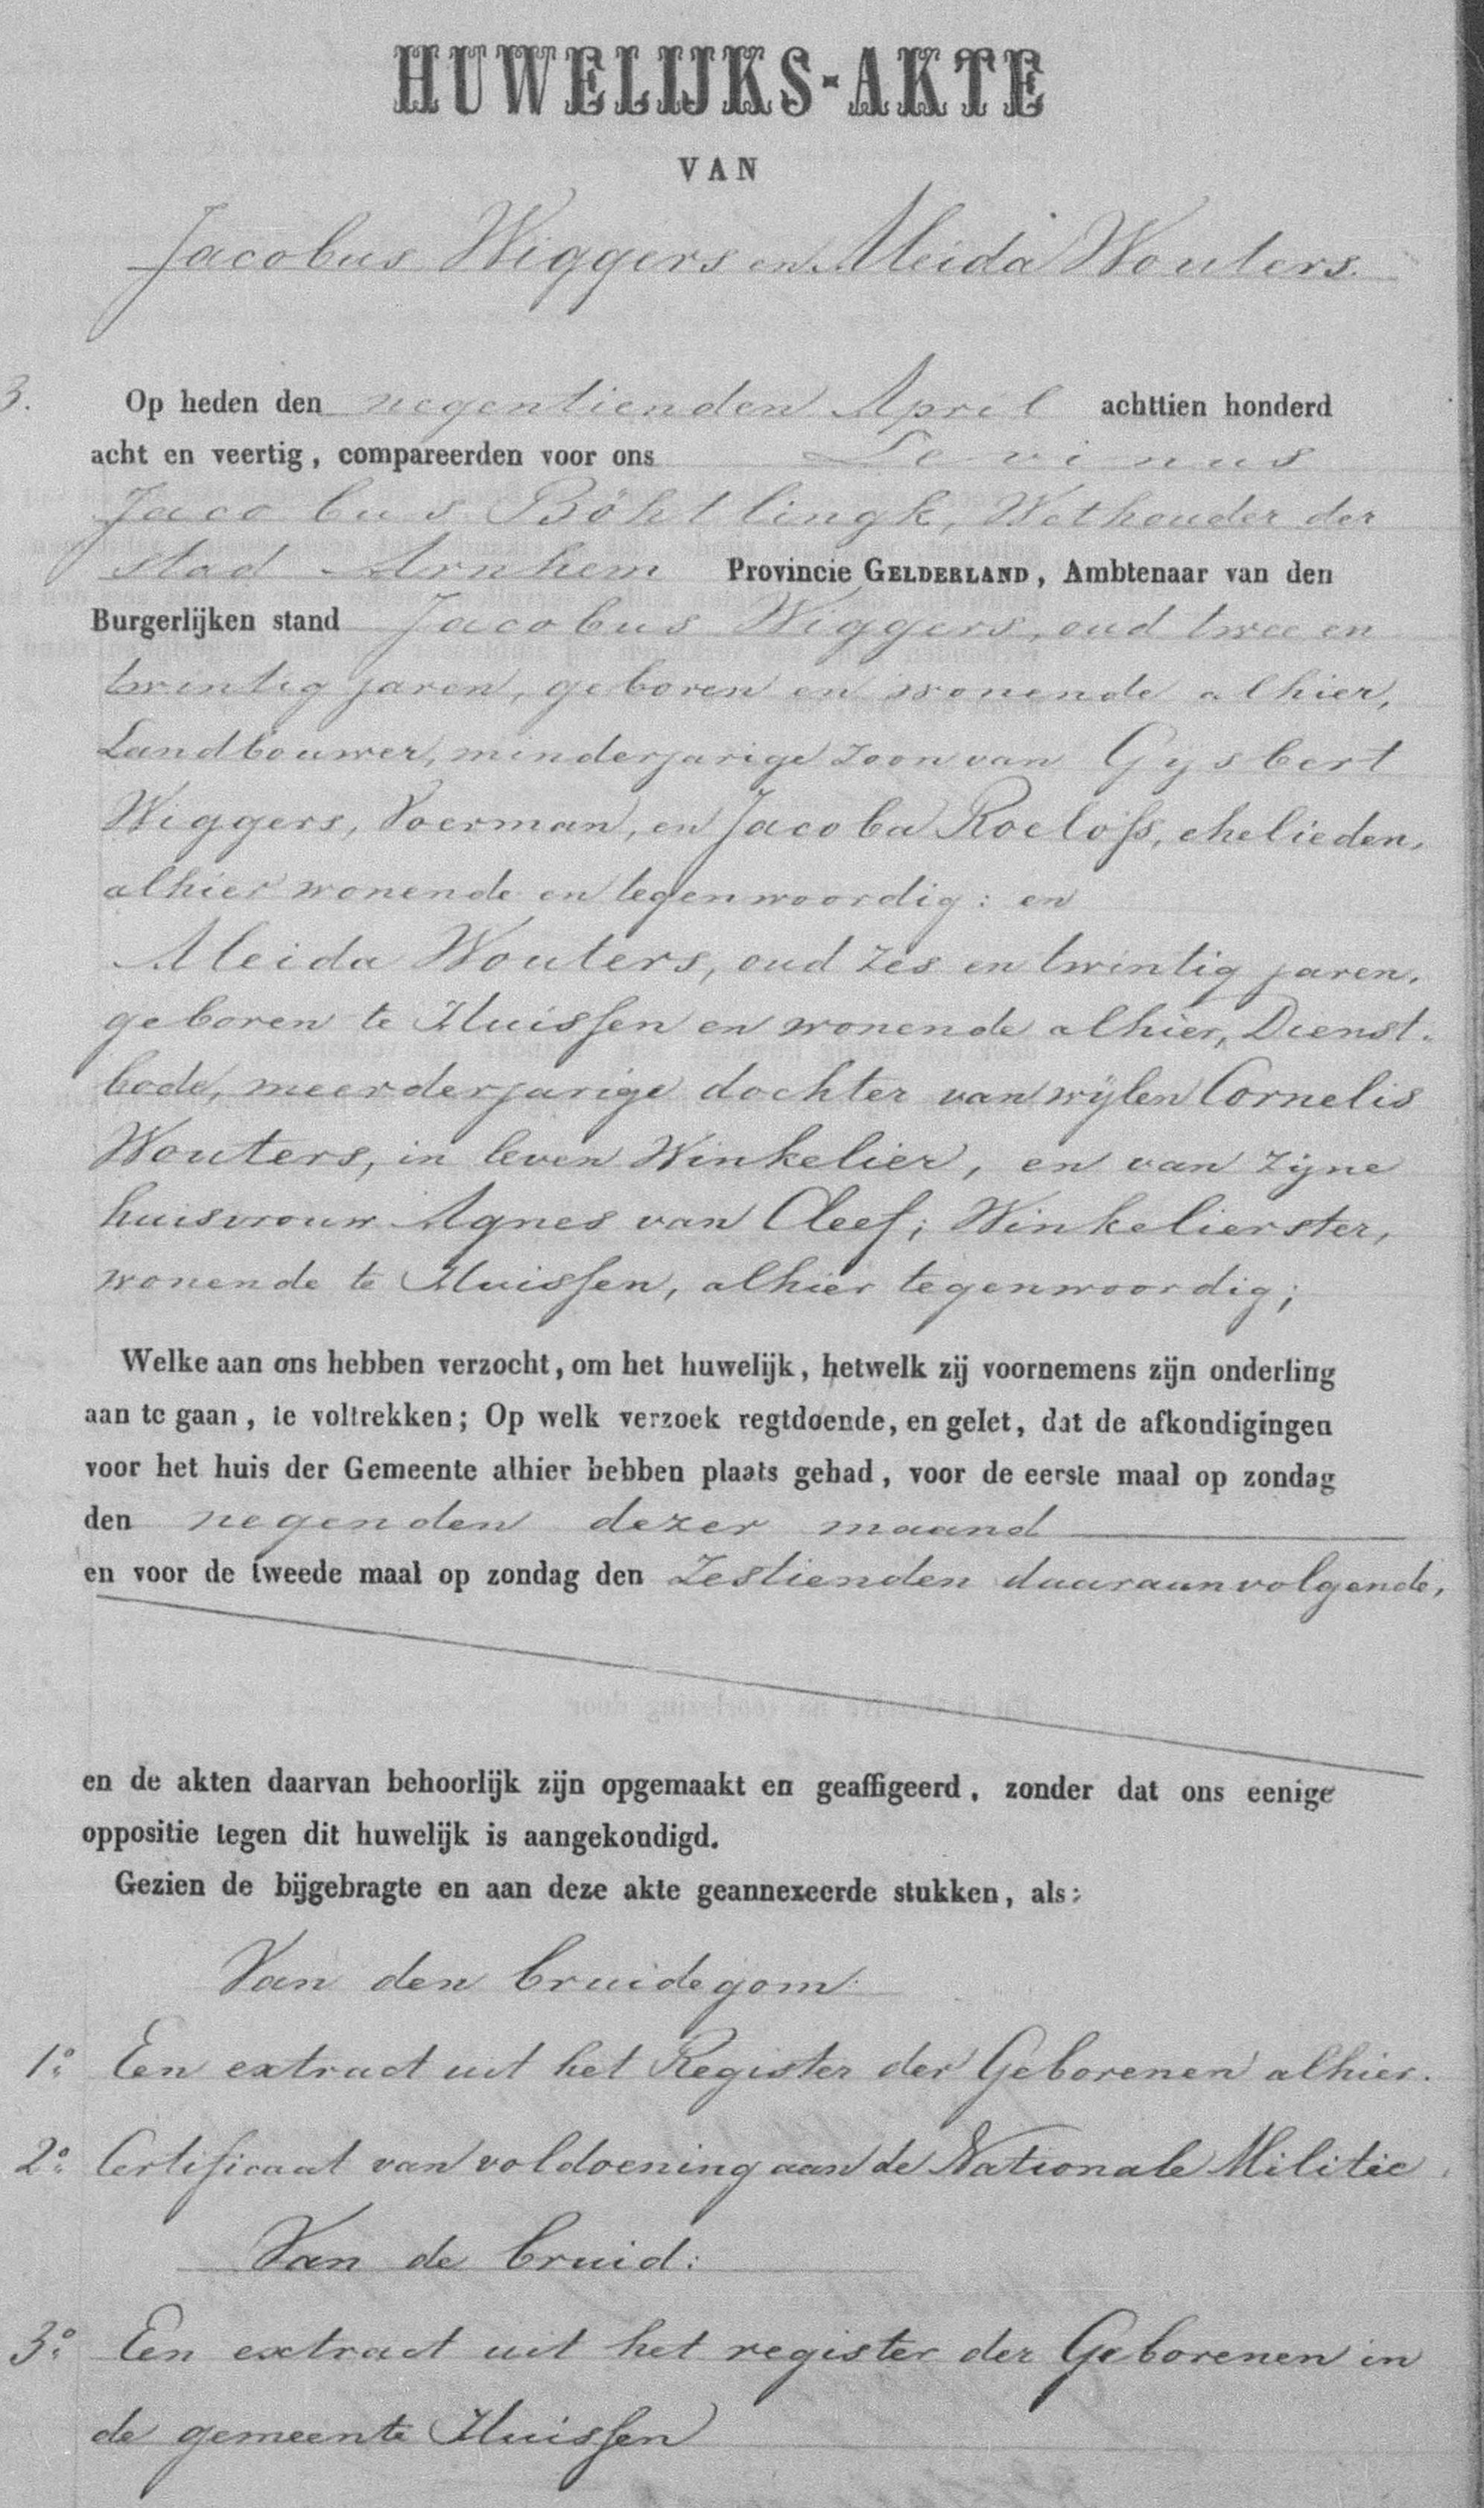 HUWELIJKS-AKTE
VAN
Jacobus Wiggers en Aleida Wouters.
3.
Op heden den negentienden April achttien honderd
acht en veertig, compareerden voor ons Levinus
Jacobus Böhtlingk, Wethouder der
stad Arnhem Provincie GELDERLAND, Ambtenaar van den
Burgerlijken stand Jacobus Wiggers, oud twee en
twintig jaren, geboren en wonende alhier,
Landbouwer, minderjarige zoon van Gysbert
Wiggers, Voerman, en Jacoba Roelofs, ehelieden,
alhier wonende en tegenwoordig: en
Aleida Wouters, oud zes en twintig jaren,
geboren te Huissen en wonende alhier, Dienst-
bode, meerderjarige dochter van wijlen Cornelis
Wouters, in leven Winkelier, en van zijne
huisvrouw Agnes van Cleef; Winkelierster,
wonende te Huissen, alhier tegenwoordig;
Welke aan ons hebben verzocht, om het huwelijk, hetwelk zij voornemens zijn onderling
aan te gaan, te voltrekken; Op welk verzoek regtdoende, en gelet, dat de afkondigingen
voor het huis der Gemeente alhier hebben plaats gehad, voor de eerste maal op zondag
den negenden dezer maand
en voor de tweede maal op zondag den zestienden daaraanvolgende,
en de akten daarvan behoorlijk zijn opgemaakt en geaffigeerd, zonder dat ons eenige
oppositie tegen dit huwelijk is aangekondigd.
Gezien de bijgebragte en aan deze akte geannexeerde stukken, als:
Van den bruidegom:
1o. Een extract uit het Register der Geborenen alhier.
2o. Certificaat van voldoening aan de Nationale Militie.
Van de bruid:
3o. Een extract uit het register der Geborenen in
de gemeente Huissen